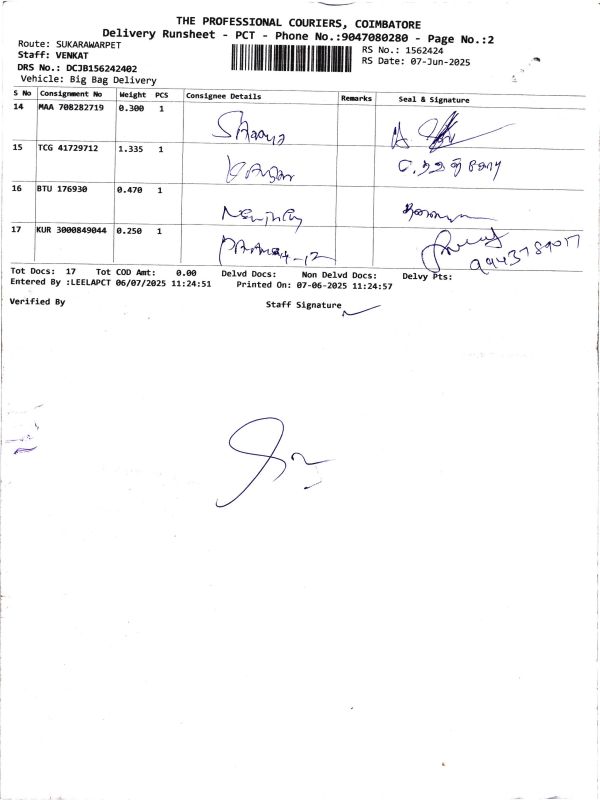 THE PROFESSIONAL COURIERS, COIMBATORE
Delivery Runsheet - PCT - Phone No.:9047080280 - Page No.:2
Route: SUKARAWARPET
Staff: VENKAT
DRS No.: DCJB156242402
Vehicle: Big Bag Delivery
RS No.: 1562424
RS Date: 07-Jun-2025
S No Consignment No Weight PCS Consignee Details Remarks Seal & Signature
14 MAA 708282719 0.300 1
15 TCG 41729712 1.335 1
16 BTU 176930 0.470 1
17 KUR 3000849044 0.250 1
9943789017
Tot Docs: 17 Tot COD Amt: 0.00 Delvd Docs: Non Delvd Docs: Delvy Pts:
Entered By :LEELAPCT 06/07/2025 11:24:51 Printed On: 07-06-2025 11:24:57
Verified By Staff Signature